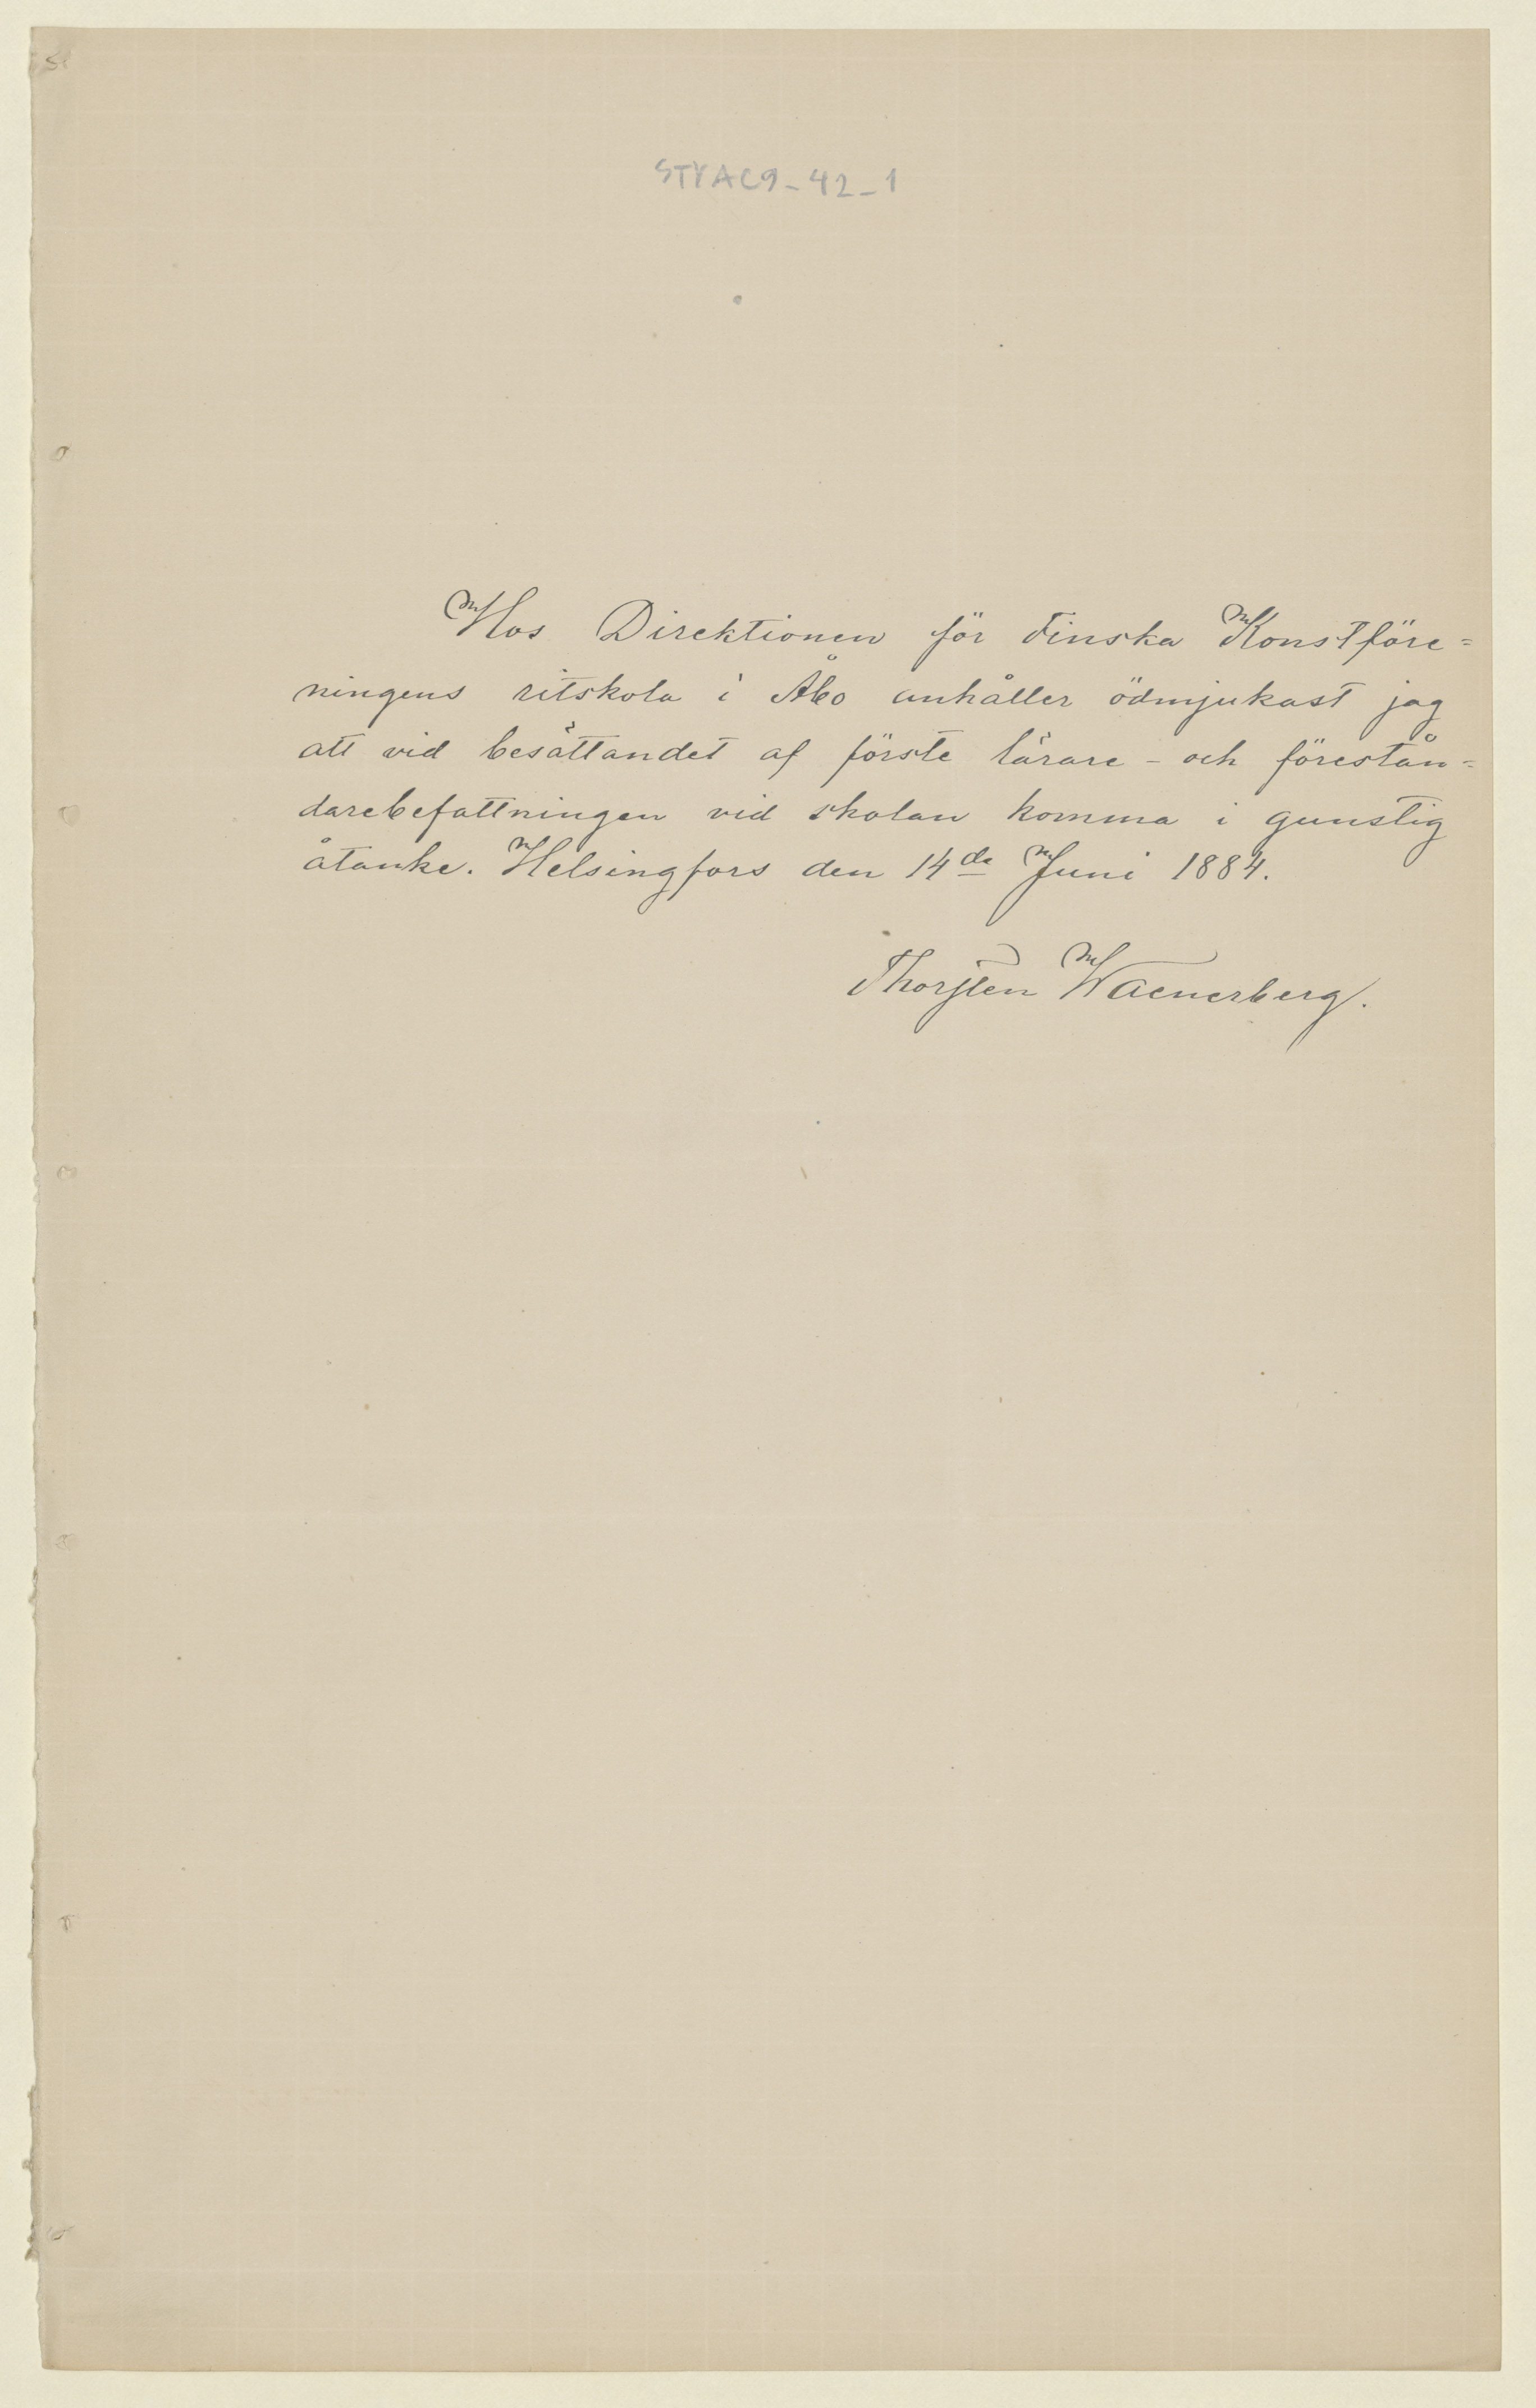 STYAC9-42-1
Hos Direktionen för Finska Konstföre=
ningens ritskola i Åbo anhåller ödmjukast jag
att vid besättandet af förste lärare - och förestån=
darebefattningen vid skolan komma i gunstig
åtanke. Helsingfors den 14de Juni 1884.
Thorsten Waenerberg.